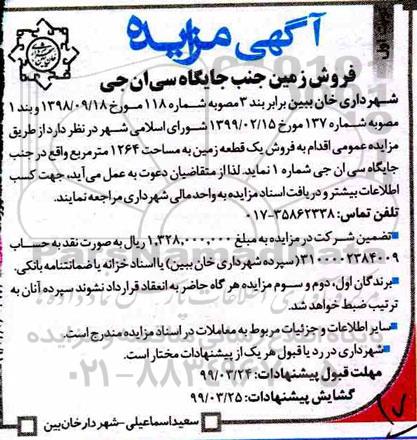 آگهی مزایده
نوبت اول
فروش زمین جنب جایگاه سی ان جی
شهرداری خان ببین برابر بند ۳ مصوبه شماره ۱۱۸ مورخ ۱۳۹۸/۰۹/۱۸ و بند ۱
مصوبه شماره ۱۳۷ مورخ ۱۳۹۹/۰۲/۱۵ شورای اسلامی شهر در نظر دارد از طریق
مزایده عمومی اقدام به فروش یک قطعه زمین به مساحت ۱۲۶۴ متر مربع واقع در جنب
جایگاه سی ان جی شماره ۱ نماید. لذا از متقاضیان دعوت به عمل می‌آید، جهت کسب
اطلاعات بیشتر و دریافت اسناد مزایده به واحد مالی شهرداری مراجعه نمایند.
تلفن تماس: ۳۵۸۶۲۳۳۸-۰۱۷
تضمین شرکت در مزایده به مبلغ ۱,۳۲۸,۰۰۰,۰۰۰ ریال به صورت نقد به حساب
۳۱۰۰۰۰۲۳۸۴۰۰۹ (سپرده شهرداری خان ببین) یا اسناد خزانه یا ضمانتنامه بانکی.
برندگان اول، دوم و سوم مزایده هر گاه حاضر به انعقاد قرارداد نشوند سپرده آنان به
ترتیب ضبط خواهد شد.
سایر اطلاعات و جزئیات مربوط به معاملات در اسناد مزایده مندرج است.
شهرداری در رد یا قبول هر یک از پیشنهادات مختار است.
مهلت قبول پیشنهادات: ۹۹/۰۳/۲۴
گشایش پیشنهادات: ۹۹/۰۳/۲۵
سعید اسماعیلی - شهردار خان‌بین
۰۲۱-۸۸۳۴۹۶۷۰